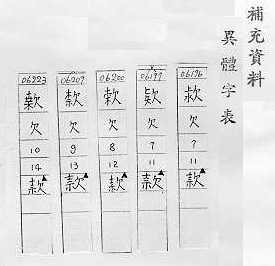 補充資料
異體字表
06196
欠
7
11
款▲
06197
欵
欠
7
11
款▲
06200
欠
8
12
款▲
06209
欠
9
13
款▲
06223
欠
10
14
款▲